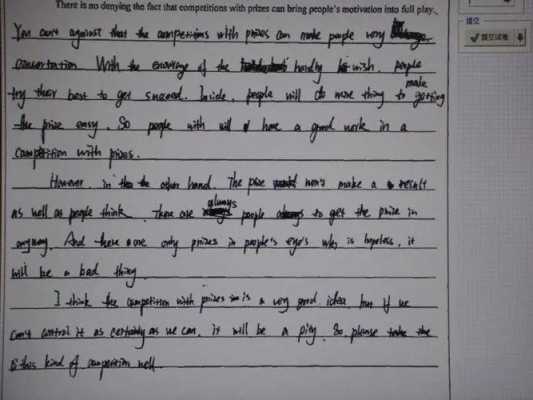 There is no denying the fact that competitions with prizes can bring people's motivation into full play.
You can't against that the competitions with prizes can make people very
concertration With the encourage of the hardly wish. people
try their best to get succeed. Inside, people will do more thing to make getting
the prize easy. So people with will have a good work in a
competition with prizes.
However, in the other hand. The prize won't make a result
as well as people think. There are always people to get the prize in
anyway. And there are only prizes in people's eye's who is hopeless, it
will be a bad thing
I think the competition with prizes is a very good idea. but if we
can't control it as certainly as we can, it will be a pity. So, please take the
this kind of competition well.
提交
提交试卷